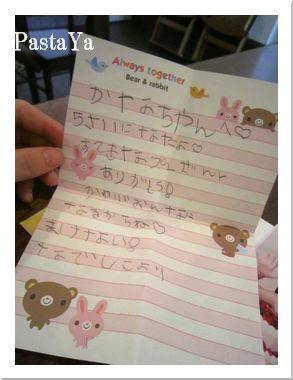 PastaYa
Always together
Bear & rabbit
かなちゃんへ♡
5さいになたよ♡
すてきなプレぜんと
ありがとう!
かわいいおんなに
なるからね♡
まけないよ!
なでしこより